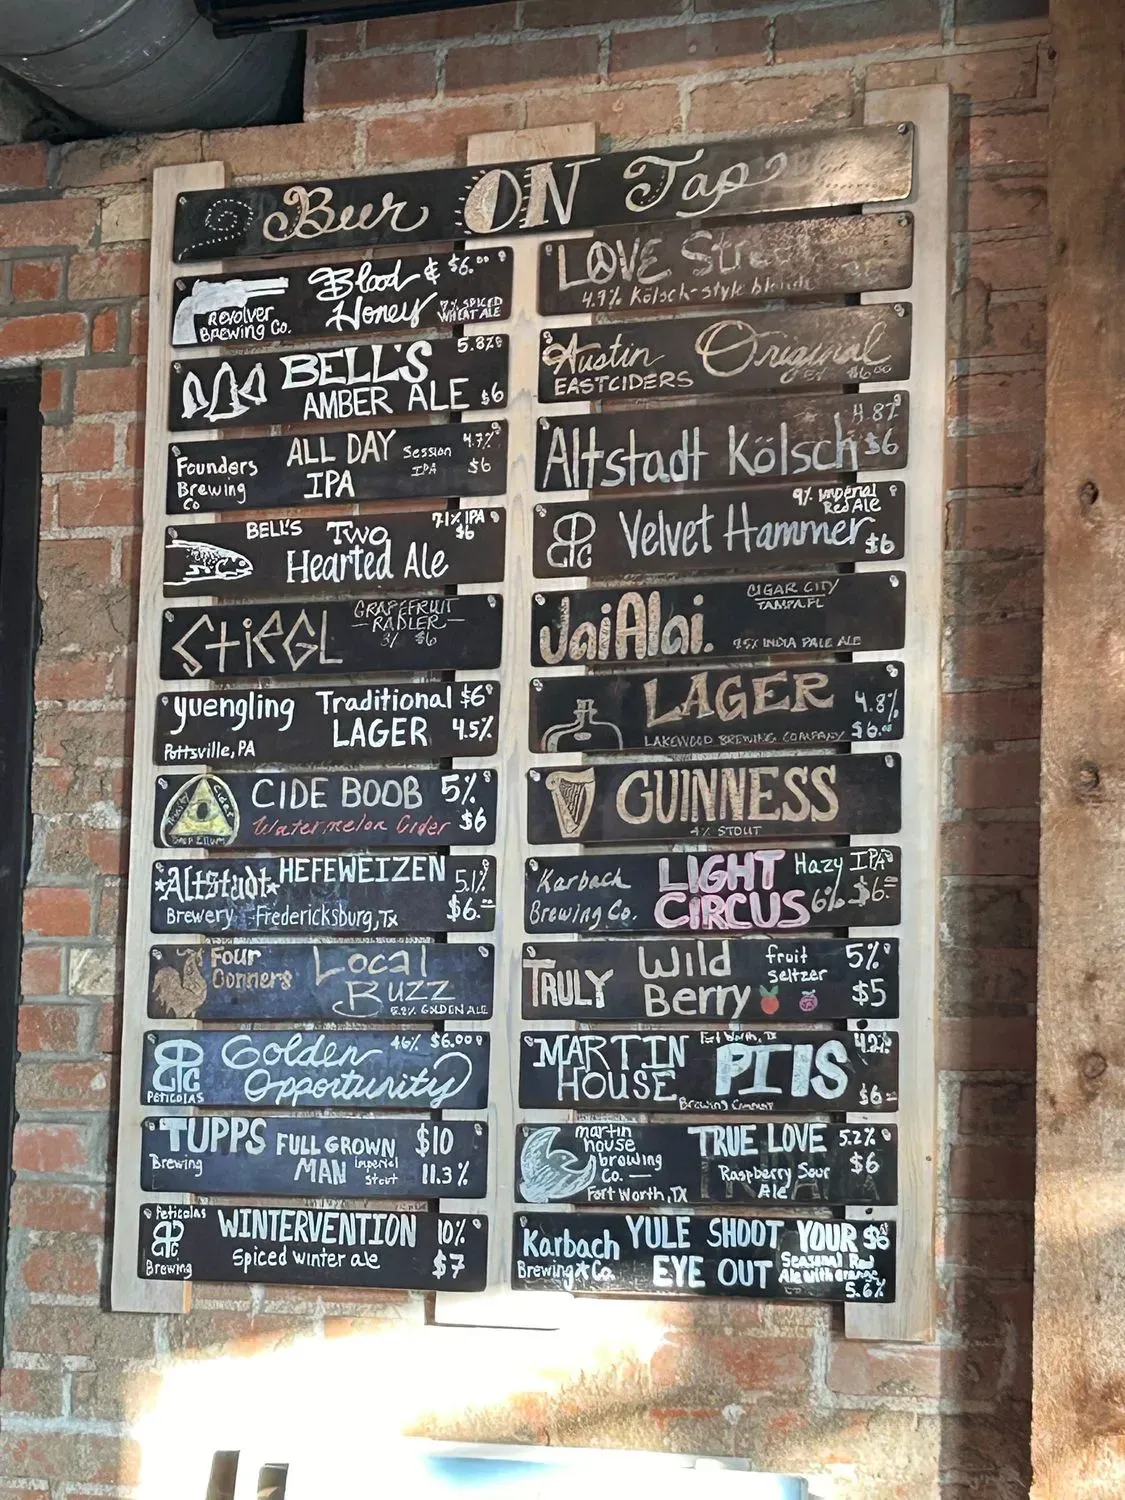 Beer ON Tap
Revolver
Brewing Co.
Blood &
Honey
$6.00
7% SPICED
WHEAT ALE
BELL'S
AMBER ALE
5.8%
$6
Founders
Brewing
Co
ALL DAY
IPA
Session
IPA
4.7%
$6
BELL'S Two
Hearted Ale
7.1% IPA
$6
Stiegl
GRAPEFRUIT
—RADLER—
$6
yuengling
Pottsville, PA
Traditional
LAGER
$6
4.5%
Cider
CIDE BOOB
Watermelon Cider
5%
$6
Altstadt
Brewery
HEFEWEIZEN
Fredericksburg, Tx
5.1%
$6.00
Four
Corners
Local
Buzz
5.2% GOLDEN ALE
PETICOLAS
Golden
Opportunity
4.6% $6.00
TUPPS
Brewing
FULL GROWN
MAN
Imperial
Stout
$10
11.3%
Peticolas
Brewing
WINTERVENTION
Spiced winter ale
10%
$7
LOVE
4.9% Kölsch-style
Austin
EASTCIDERS
Original
5% $6.00
Altstadt Kölsch
4.8%
$6
Velvet Hammer
9% Imperial
Red Ale
$6
JaiAlai.
CIGAR CITY
TAMPA. FL
INDIA PALE ALE
LAGER
LAKEWOOD BREWING COMPANY
4.8%
$6.00
GUINNESS
4% STOUT
Karbach
Brewing Co.
LIGHT
CIRCUS
Hazy IPA
6% $6.00
TRULY
Wild
Berry
fruit
seltzer
5%
$5
MARTIN
HOUSE
Brewing Company
Fort Worth, TX
PILS
4.2%
$6
martin
house
brewing
Co. —
Fort Worth, TX
TRUE LOVE
Raspberry Sour
Ale
5.2%
$6
Karbach
Brewing Co.
YULE SHOOT YOUR
EYE OUT
$6
Seasonal Red
Ale with orange
5.6%